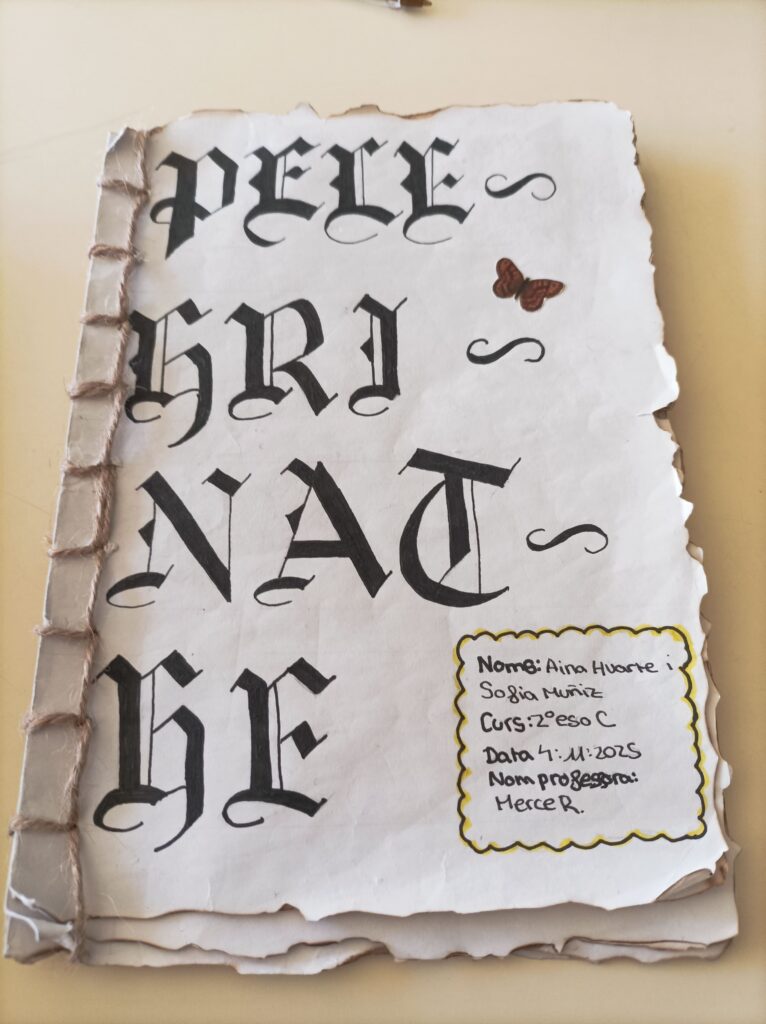 PELE~
HRI ~
NAT~
HE
Noms: Aina Huarte i
Sofia Muñiz
Curs: 2º eso C
Data 4:11:2025
Nom professora:
Merce R.